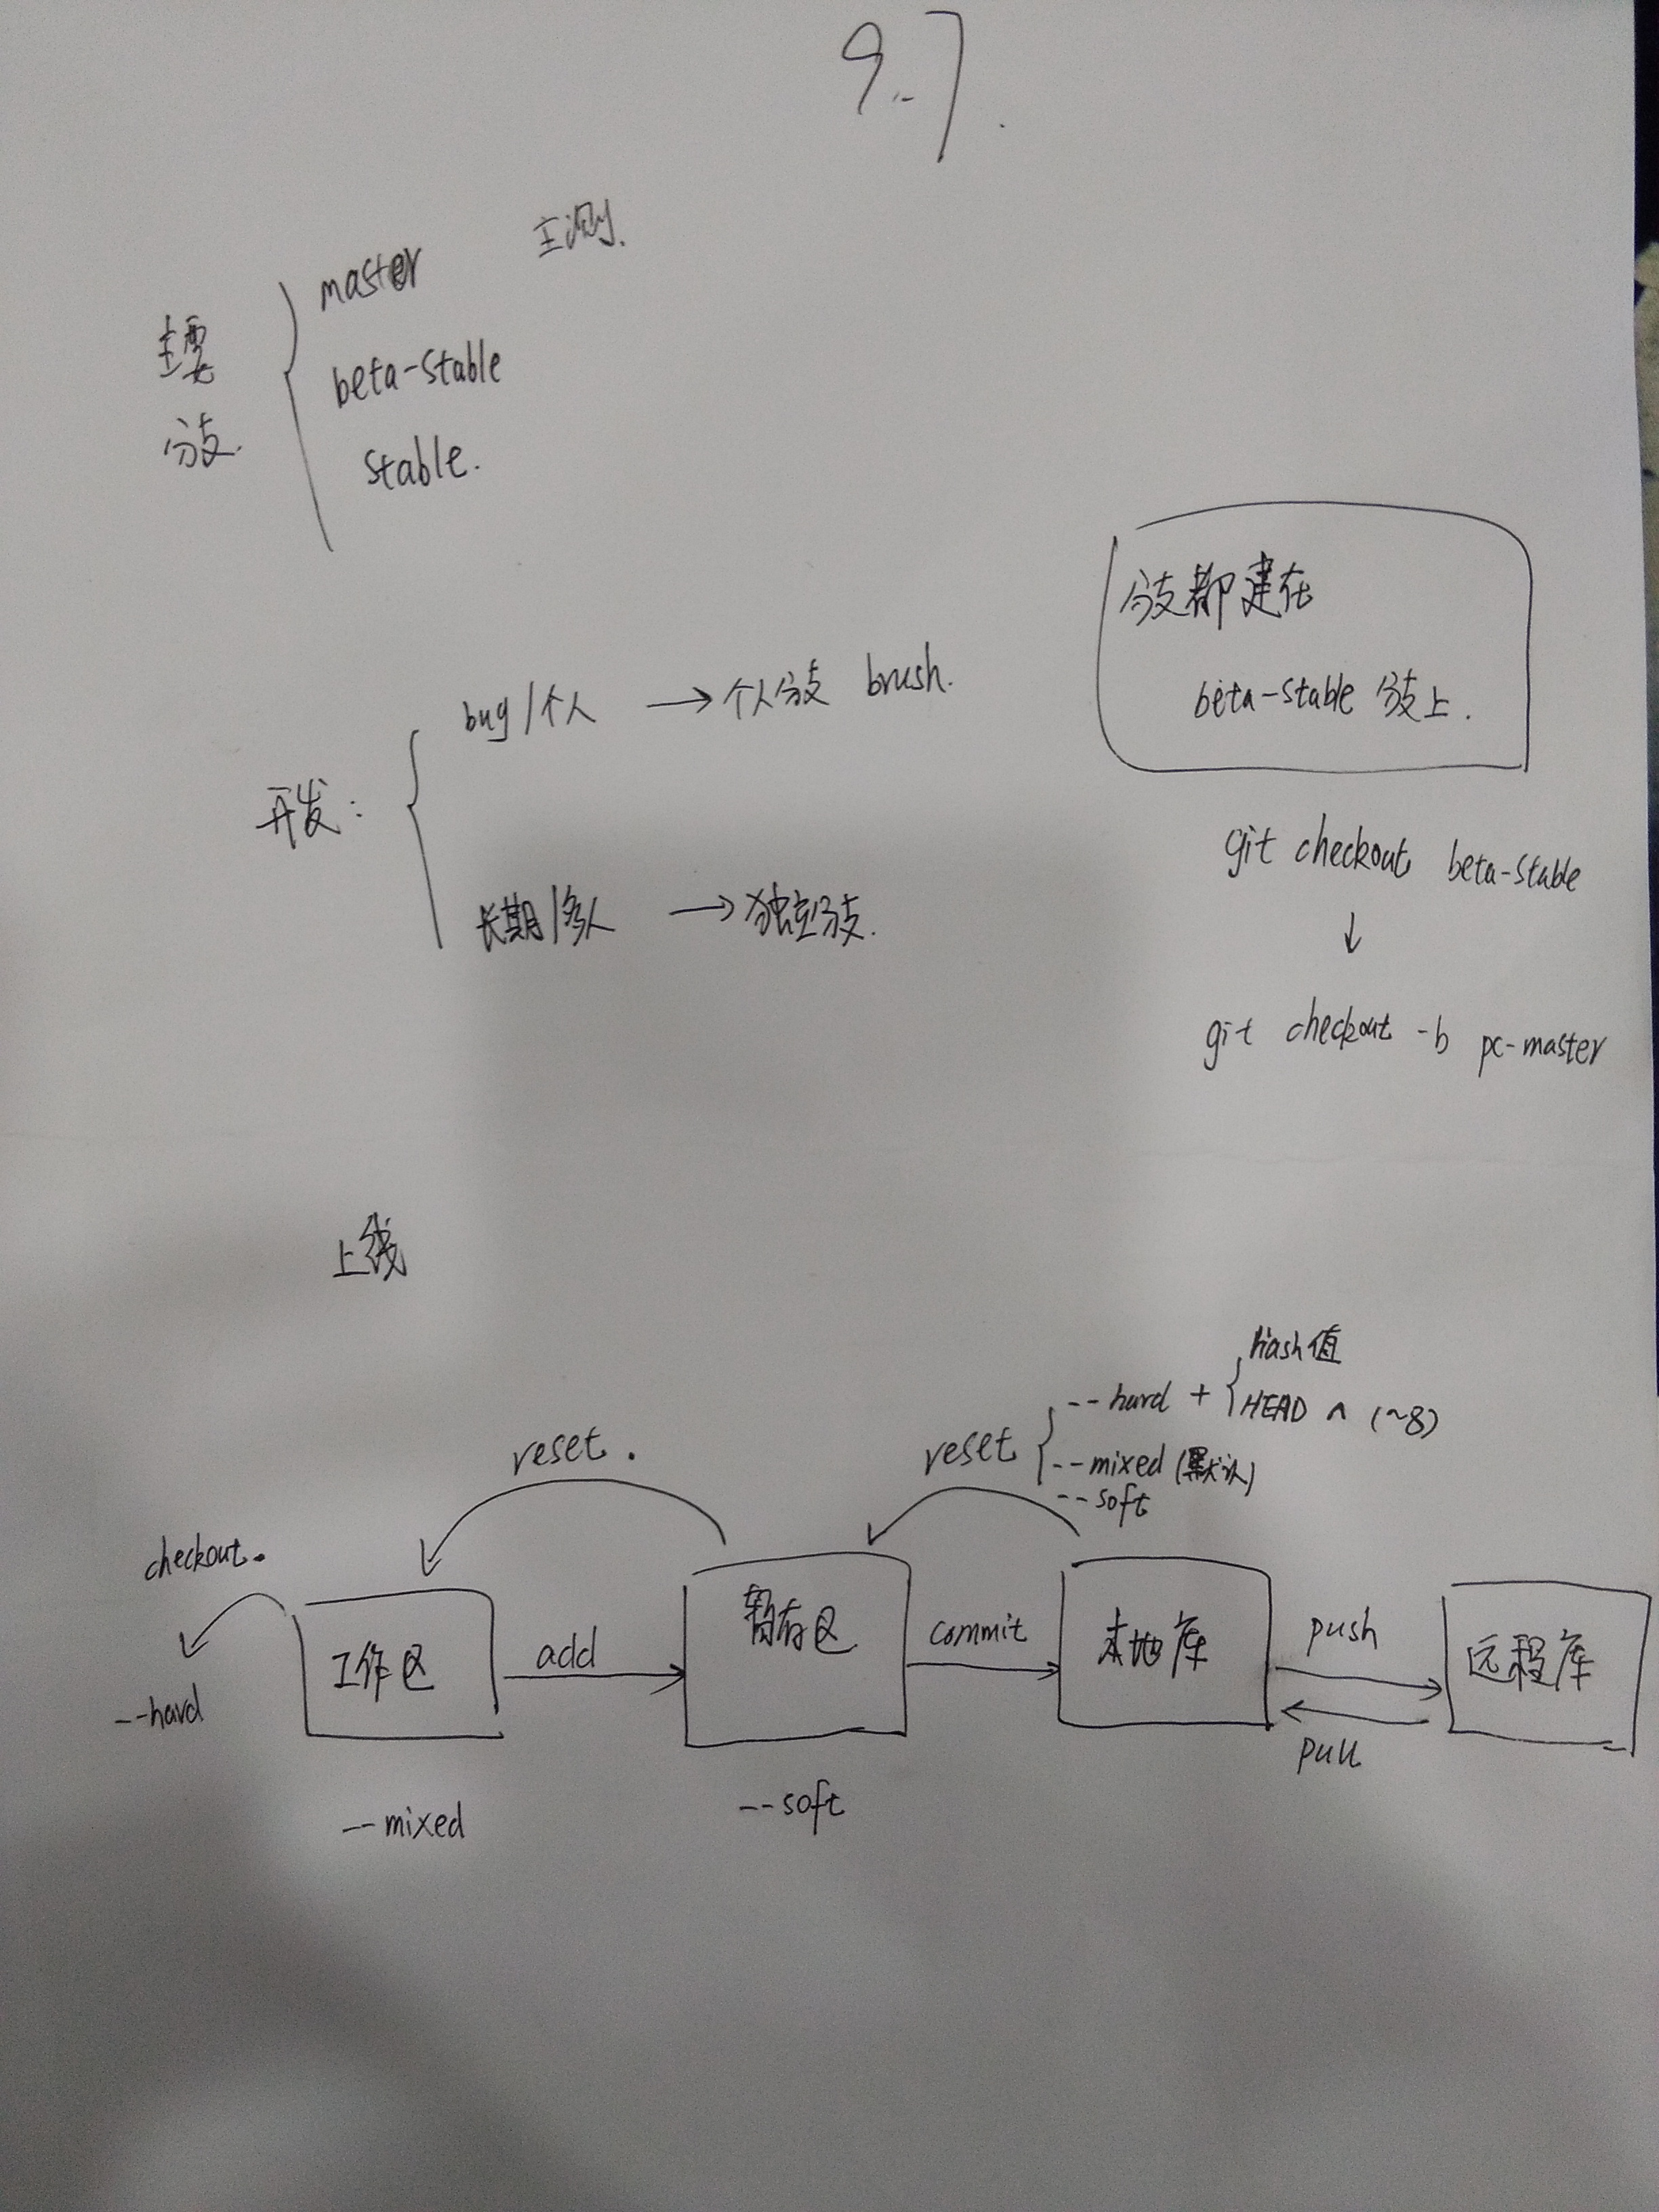 9.7.
主要
分支.
master 主测.
beta-stable
stable.
分支都建在
beta-stable 分支上.
开发:
bug/个人 → 个人分支 brush.
长期/多人 → 独立分支.
git checkout beta-stable
↓
git checkout -b pc-master
上线
reset.
reset
--hard + hash值
HEAD ^ (~8)
--mixed (默认)
--soft
checkout.
--hard
工作区
add
暂存区
commit
本地库
push
pull
远程库
--mixed
--soft